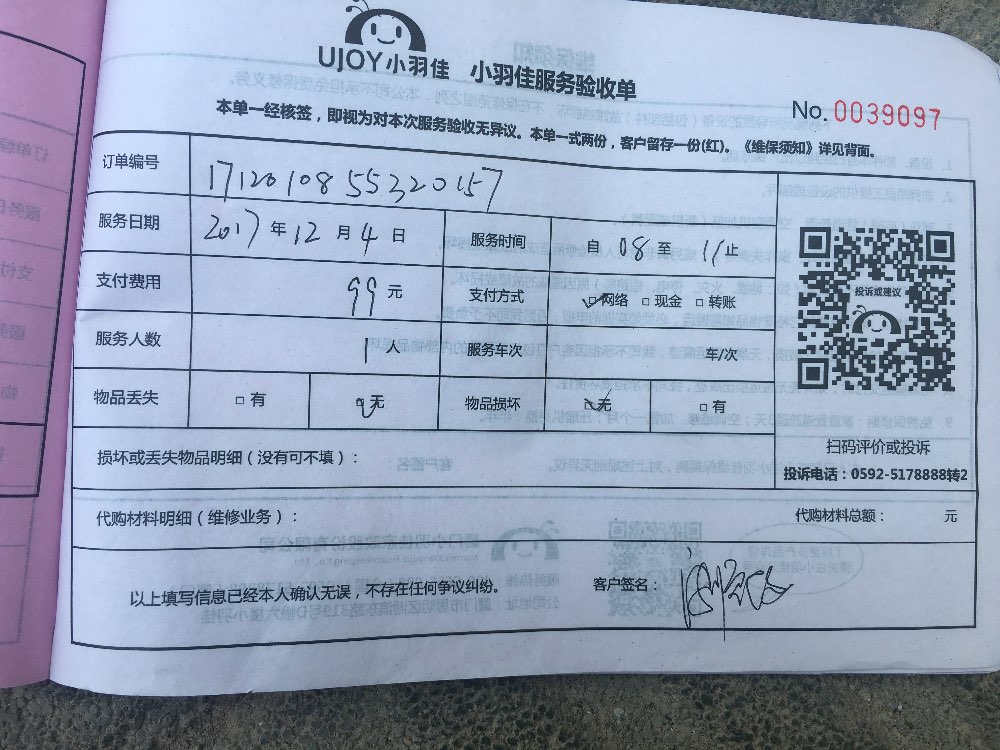 UJOY小羽佳 小羽佳服务验收单
No. 0039097
本单一经核签，即视为对本次服务验收无异议。本单一式两份，客户留存一份(红)。《维保须知》详见背面。
订单编号 17120108553220157
服务日期 2017年12月4日 服务时间 自08至11止
支付费用 99元 支付方式 网络 □现金 □转账
服务人数 1人 服务车次 车/次
物品丢失 □有 无 物品损坏 无 □有
投诉或建议
扫码评价或投诉
损坏或丢失物品明细（没有可不填）：
投诉电话：0592-5178888转2
代购材料明细（维修业务）： 代购材料总额： 元
以上填写信息已经本人确认无误，不存在任何争议纠纷。 客户签名：